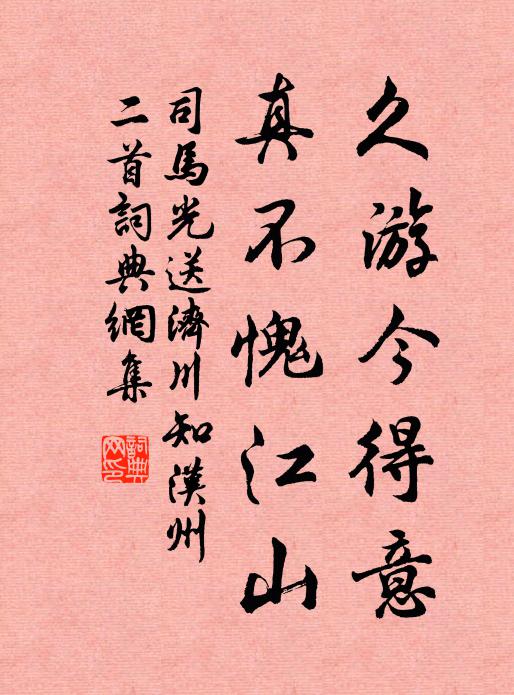 久游今得意
真不愧江山
司馬光送濟川知漢州
二首詞典網集
詞典
网印